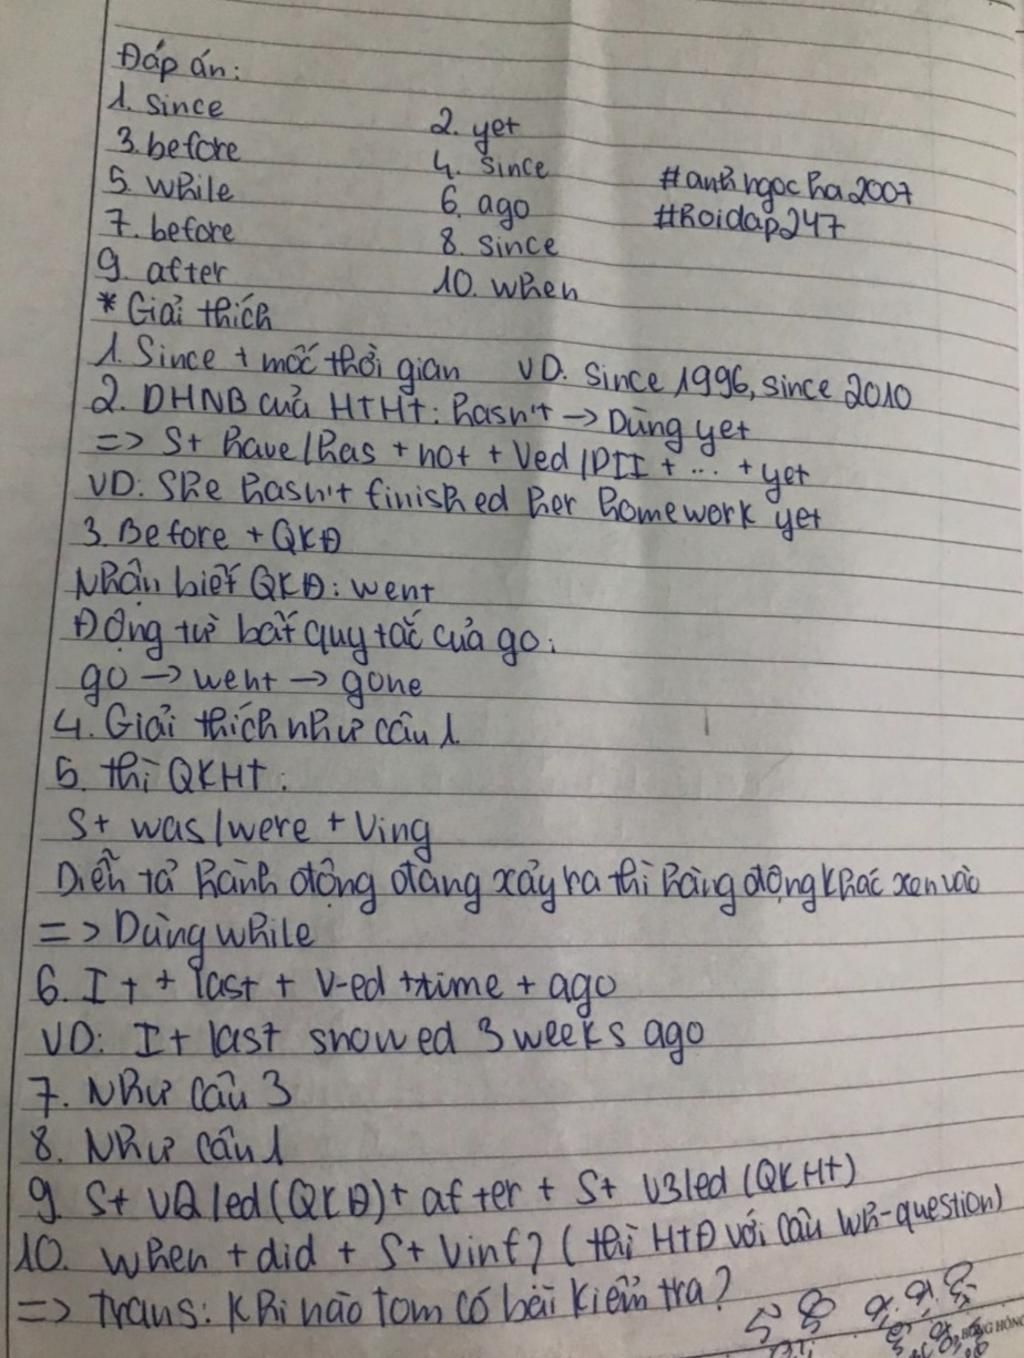 Đáp án:
1. since 2. yet
3. before 4. since
5. while 6. ago
7. before 8. since
9. after 10. when
#anhngocha2007
#hoidap247
* Giải thích
1. Since + mốc thời gian VD. since 1996, since 2010
2. DHNB của HTHT: hasn't → Dùng yet
=> S+ have/has + not + Ved/PII + ... + yet
VD: She hasn't finished her homework yet
3. Before + QKĐ
Nhận biết QKĐ: went
Động từ bất quy tắc của go:
go → went → gone
4. Giải thích như câu 1
5. thì QKHT:
S+ was/were + Ving
Diễn tả hành động đang xảy ra thì hàng động khác xen vào
=> Dùng while
6. It + last + V-ed + time + ago
VD: It last snowed 3 weeks ago
7. Như câu 3
8. Như câu 1
9. S+ V2/ed (QKĐ) + after + S+ V3/ed (QKHT)
10. When + did + S+ Vinf? (thì HTĐ với câu Wh-question)
=> Trans: Khi nào Tom có bài kiểm tra?